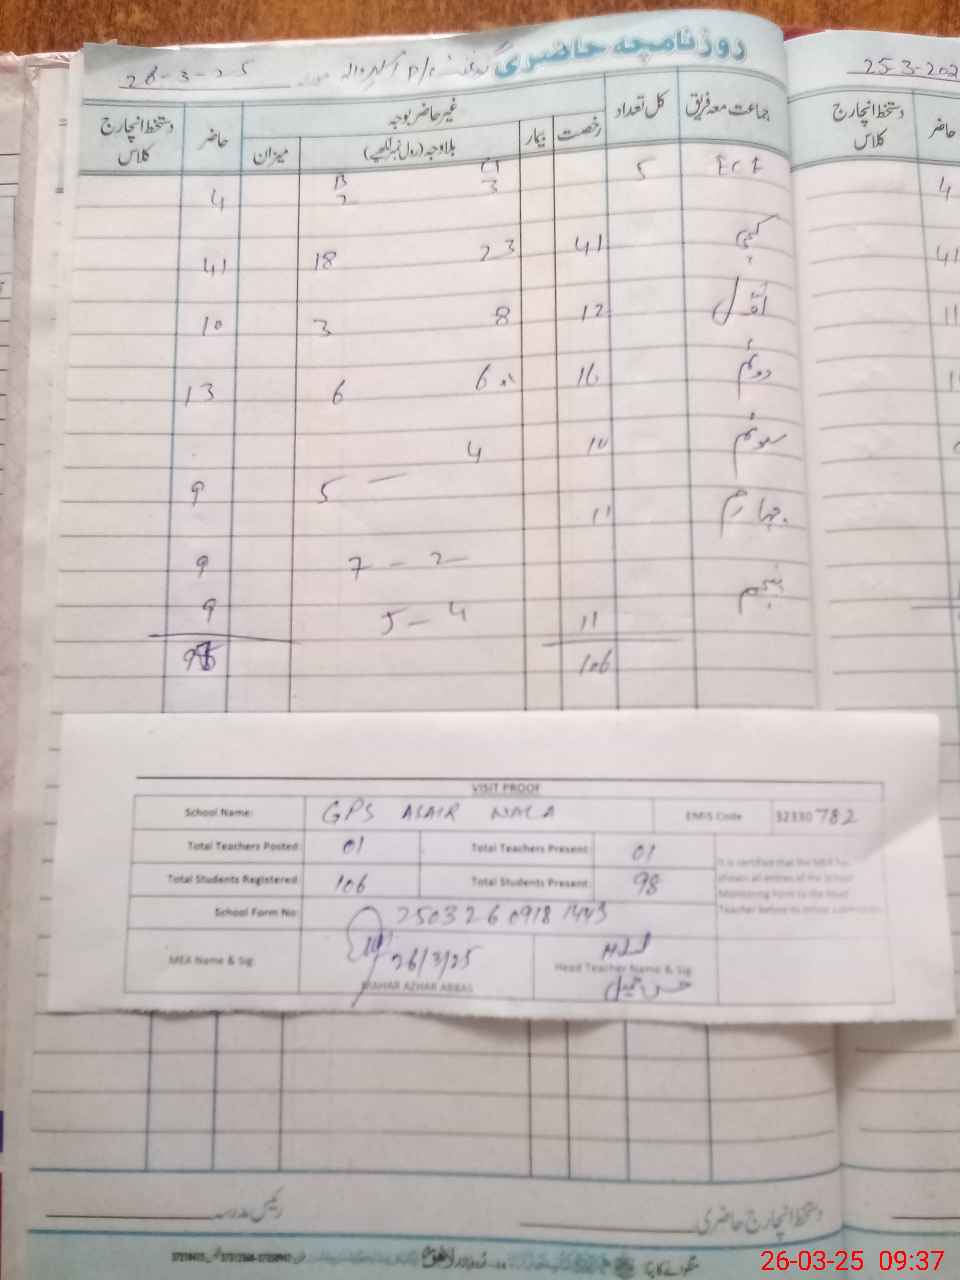 روزنامچہ حاضری
28-3-25
25-3-202
جماعت معہ فریق
کل تعداد
غیر حاضر بوجہ
رخصت
بیمار
بلا وجہ (رول نمبر لکھیے)
میزان
حاضر
دستخط انچارج کلاس
حاضر
دستخط انچارج کلاس
ECE 5 3 2 4
کچی 41 23 18 41
اول 12 8 3 10
دوئم 16 6 6 13
سوئم 10 4 — 5 9
چہارم 11 2 – 7 9
پنجم 11 4 – 5 9
106
VISIT PROOF
School Name: GPS ASAIR WALA EMIS Code 32330782
Total Teachers Posted: 01 Total Teachers Present: 01
Total Students Registered: 106 Total Students Present: 98
It is certified that the MEA has shown all entries of the School Monitoring Form to the Head Teacher before its online submission
School Form No: 250326 0918 1443
MEA Name & Sig: 26/3/25 Head Teacher Name & Sig
MAHAR AZHAR ABBAS
رئیس مدرسہ
دستخط انچارج حاضری
منگوانے کا پتا
26-03-25 09:37